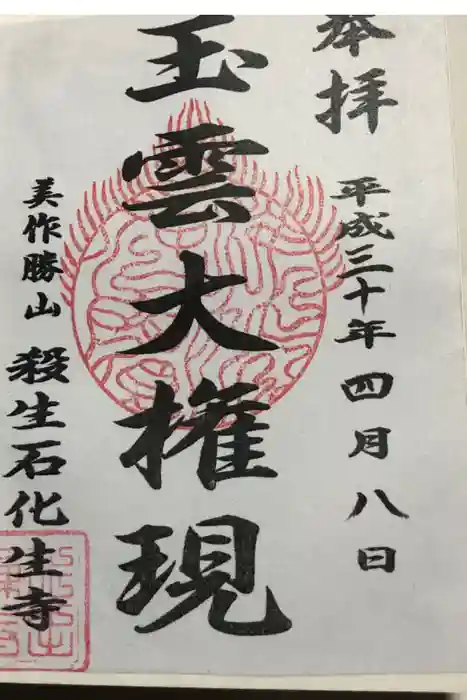 奉拝
平成三十年四月八日
玉雲大権現
美作勝山 殺生石化生寺